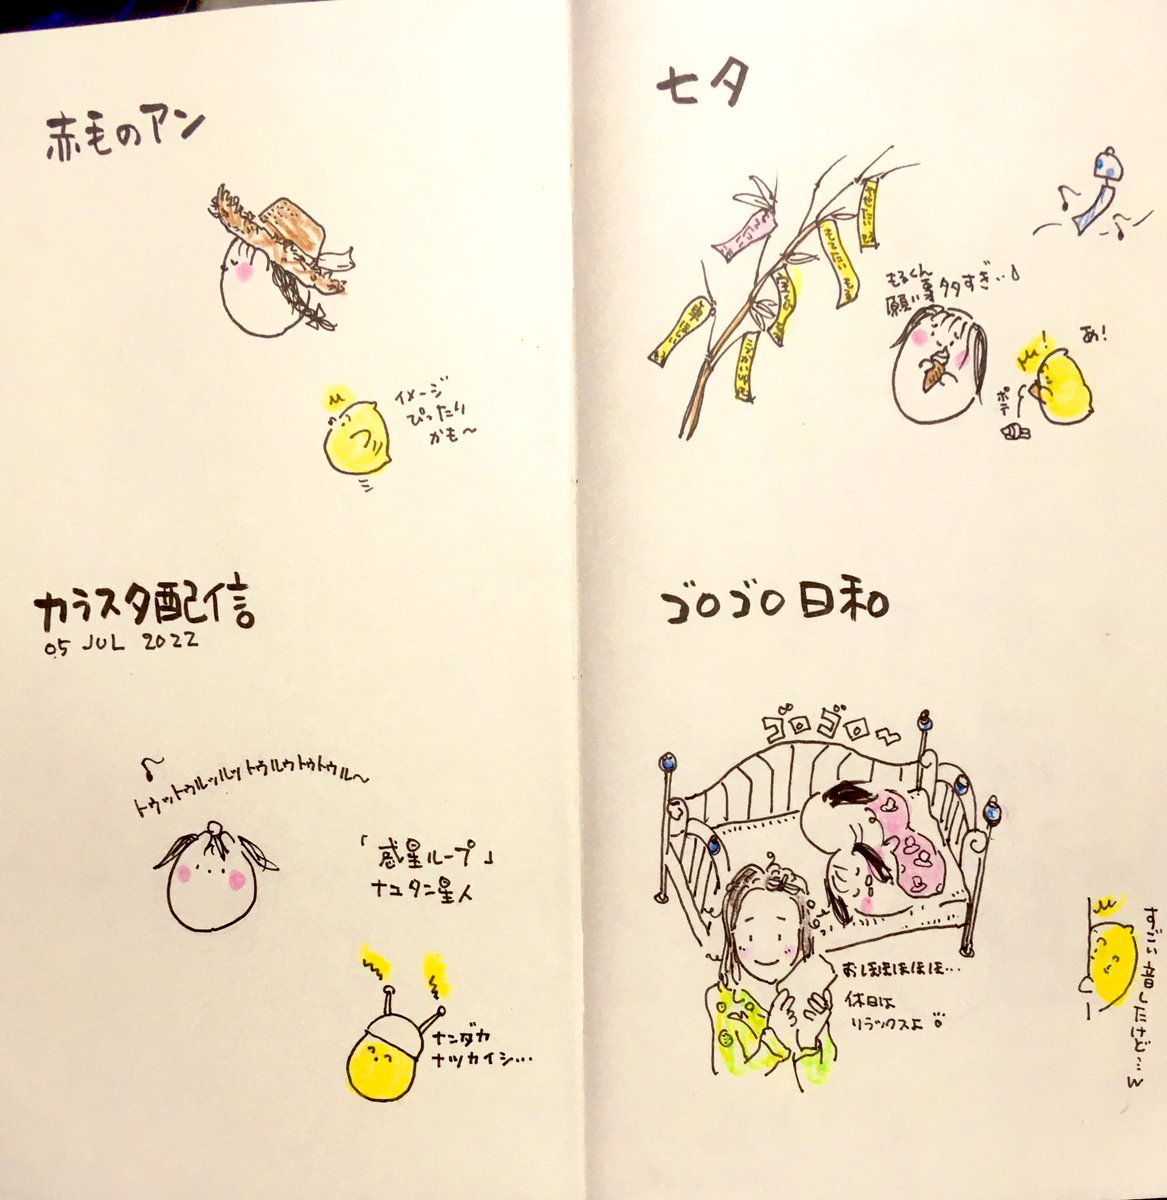 赤毛のアン
イメージ
ぴったり
かも〜
カラスタ配信
05 JUL 2022
トゥットゥルッルットゥルゥトゥトゥル〜
「惑星ループ」
ナユタン星人
ナンダカ
ナツカイシ…
七夕
もるくん
願い事タタすぎ…
あ!
ポテ
ゴロゴロ日和
ゴロゴロ〜
おほほほほほ…
休日は
リラックスよ
すごい音したけど…w